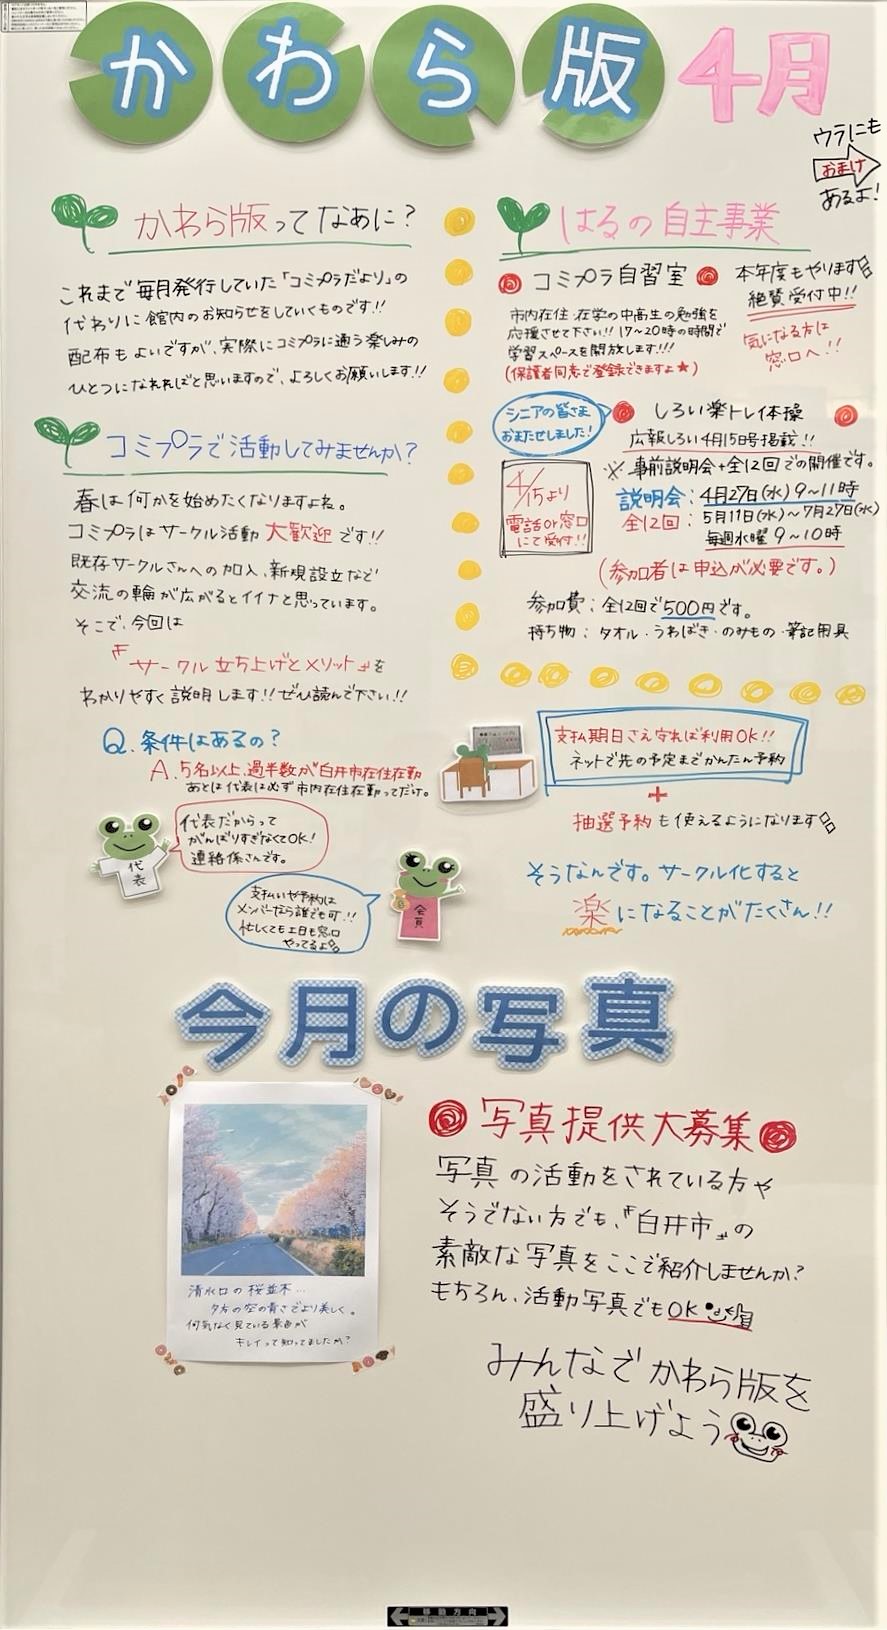 かわら版 4月
ウラにも
おまけ
あるよ!
かわら版ってなあに?
これまで毎月発行していた「コミプラだより」の
代わりに館内のお知らせをしていくものです!!
配布もよいですが、実際にコミプラに通う楽しみの
ひとつになれればと思いますので、よろしくお願いします!!
コミプラで活動してみませんか?
春は何かを始めたくなりますよね。
コミプラはサークル活動 大歓迎です!!
既存サークルさんへの加入、新規設立など
交流の輪が広がるとイイナと思っています。
そこで、今回は
『サークル立ち上げとメリット』を
わかりやすく説明します!!ぜひ読んで下さい!!
はるの自主事業
コミプラ自習室
本年度もやります
絶賛受付中!!
気になる方は
窓口へ!!
市内在住、在学の中高生の勉強を
応援させて下さい!! 17~20時の時間で
学習スペースを開放します!!!
(保護者同意で登録できますよ★)
シニアの皆さま
おまたせしました!
しろい楽トレ体操
広報しろい4月15日号掲載!!
※事前説明会+全12回での開催です。
4/15より
電話or窓口
にて受付!!
説明会:4月27日(水)9~11時
全12回:5月11日(水)~7月27日(水)
毎週水曜 9~10時
(参加者は申込が必要です。)
参加費:全12回で500円です。
持ち物:タオル・うわばき・のみもの・筆記用具
Q.条件はあるの?
A.5名以上、過半数が白井市在住在勤
あとは代表は必ず市内在住在勤ってだけ。
代表だからって
がんばりすぎなくてOK!
連絡係さんです。
代表
支払いや予約は
メンバーなら誰でも可!!
忙しくても土日も窓口
やってるよ
会員
支払期日さえ守れば利用OK!!
ネットで先の予定までかんたん予約
+
抽選予約も使えるようになります
そうなんです。サークル化すると
楽になることがたくさん!!
今月の写真
清水口の桜並木…
夕方の空の青さでより美しく。
何気なく見ている景色が
キレイって知ってましたか?
写真提供大募集
写真の活動をされている方や
そうでない方でも、『白井市』の
素敵な写真をここで紹介しませんか?
もちろん、活動写真でもOK
みんなでかわら版を
盛り上げよう
移動方向